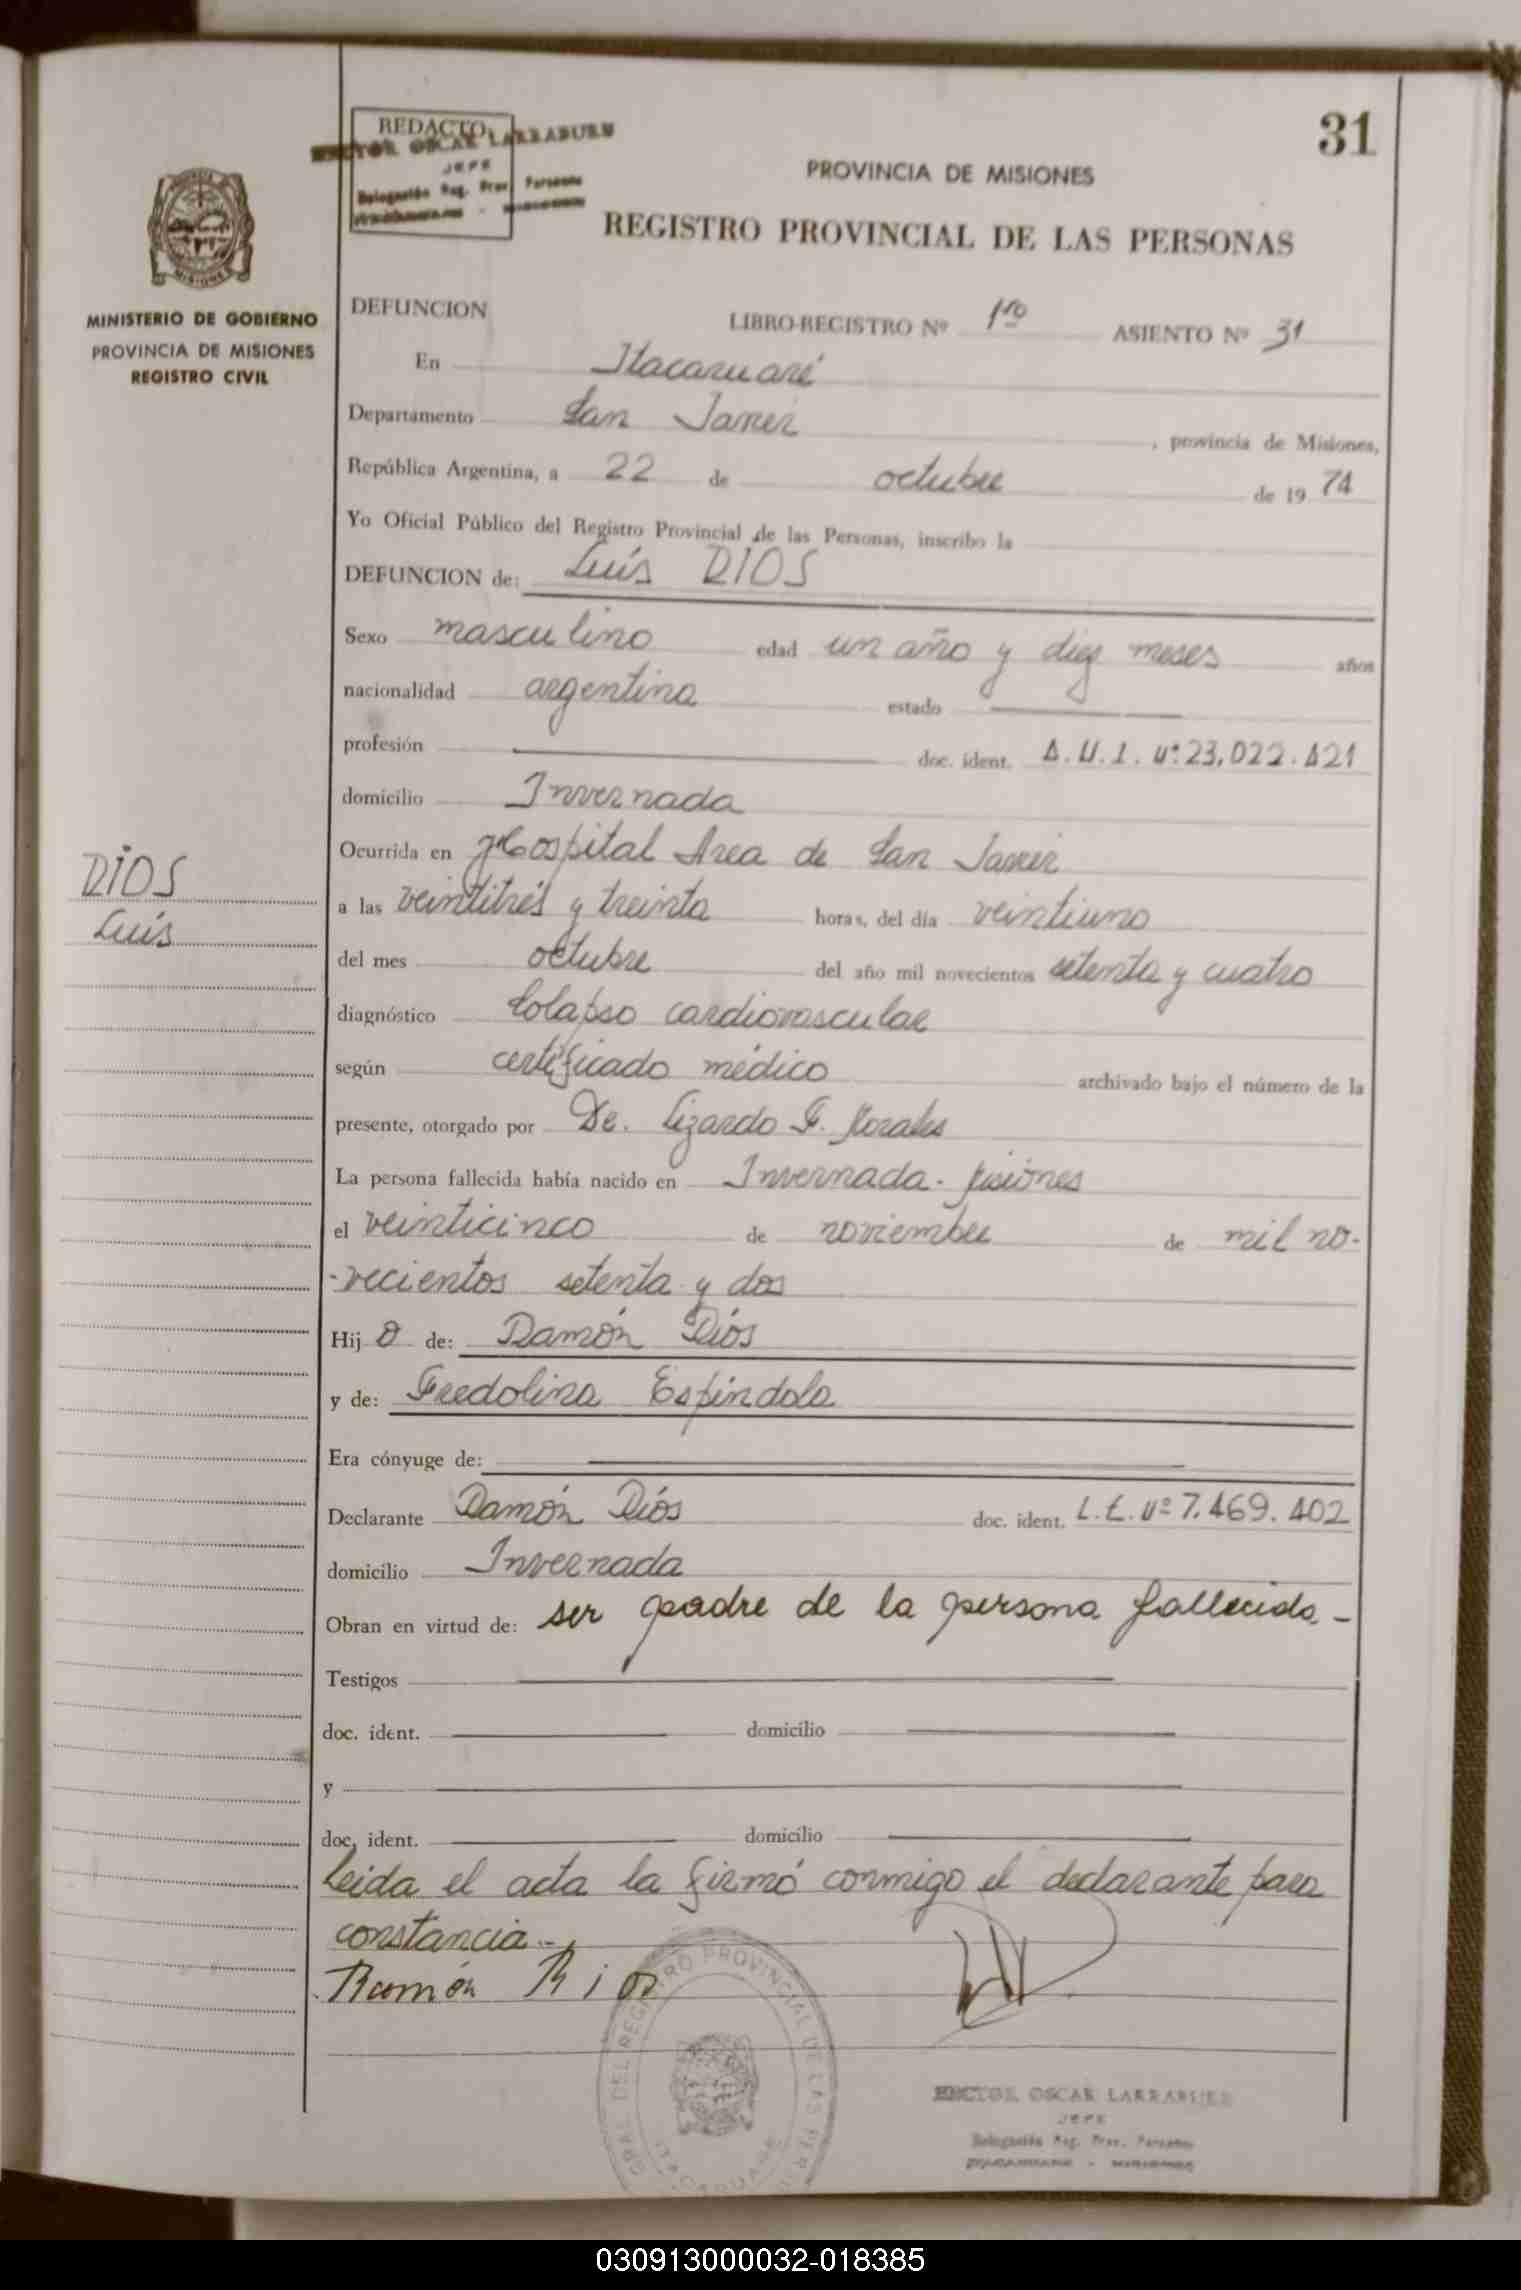 31
REDACTO
HECTOR OSCAR LARRABURE
JEFE
Delegación Reg. Prov. Personas
PROVINCIA DE MISIONES
REGISTRO PROVINCIAL DE LAS PERSONAS
MISIONES
MINISTERIO DE GOBIERNO
PROVINCIA DE MISIONES
REGISTRO CIVIL
DEFUNCION LIBRO-REGISTRO Nº 1ro ASIENTO Nº 31
En Itacaruaré
Departamento San Javier, provincia de Misiones,
República Argentina, a 22 de octubre de 19 74
Yo Oficial Público del Registro Provincial de las Personas, inscribo la
DEFUNCION de: Luís RIOS
Sexo masculino edad un año y diez meses años
nacionalidad argentina estado
profesión doc. ident. D.N.I. nº 23.022.421
domicilio Invernada
Ocurrida en Hospital Area de San Javier
RIOS
Luís
a las veintitrés y treinta horas, del día veintiuno
del mes octubre del año mil novecientos setenta y cuatro
diagnóstico Colapso cardiovascular
según certificado médico archivado bajo el número de la
presente, otorgado por Dr. Lizardo F. Morales
La persona fallecida había nacido en Invernada - Misiones
el veinticinco de noviembre de mil no-
-vecientos setenta y dos
Hij o de: Ramón Ríos
y de: Fredolina Espíndola
Era cónyuge de:
Declarante Ramón Ríos doc. ident. L.E. nº 7.469.402
domicilio Invernada
Obran en virtud de: ser padre de la persona fallecida -
Testigos
doc. ident. domicilio
y
doc. ident. domicilio
Leida el acta la firmó conmigo el declarante para
constancia.-
Ramón Rios
GRAL. DEL REGISTRO PROVINCIAL DE LAS PER
ITACARUARE
HECTOR OSCAR LARRABURE
JEFE
Delegación Reg. Prov. Personas
030913000032-018385